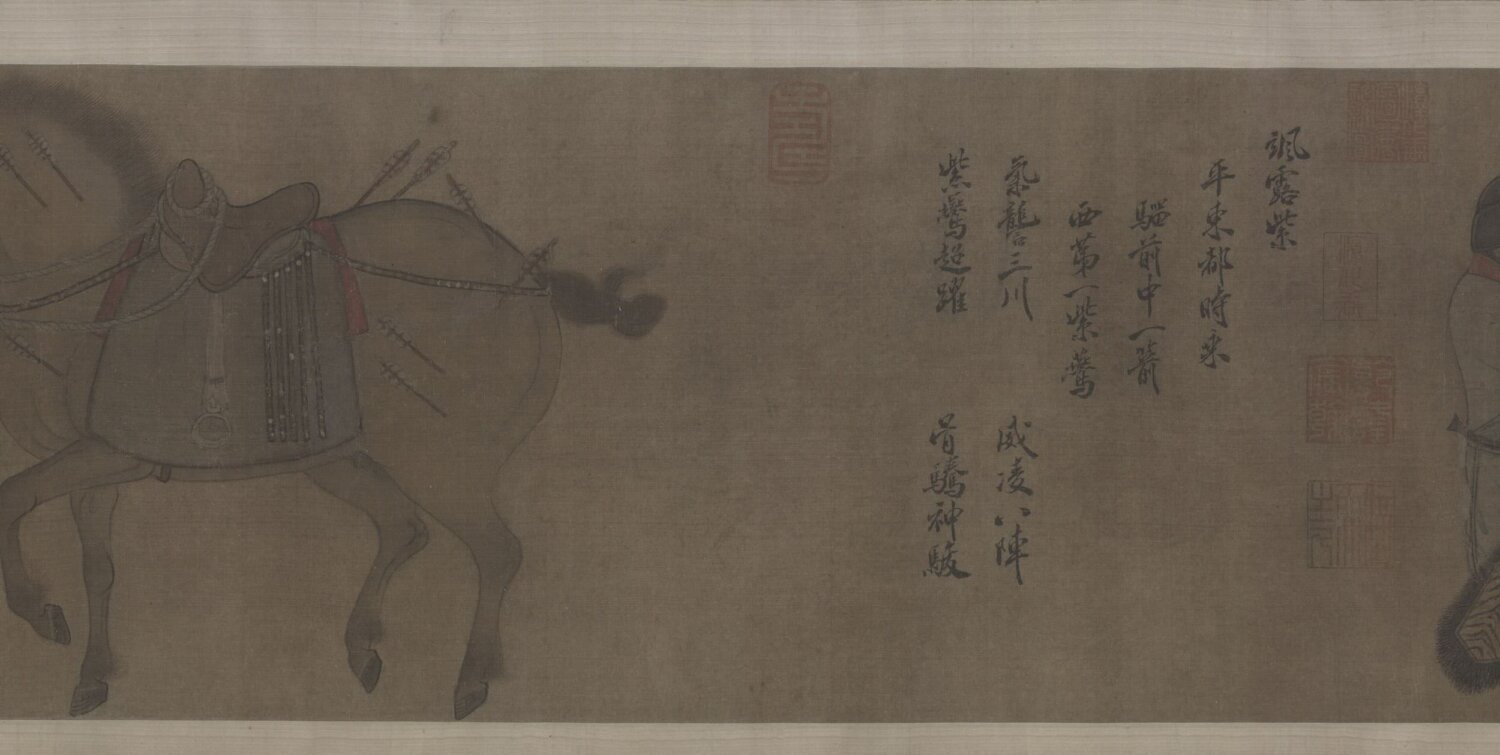 颯露紫
平東都時乘
騮前中一箭
西第一紫鷰
氣讋三川 威凌八陣
紫鷰超躍 骨騰神駿